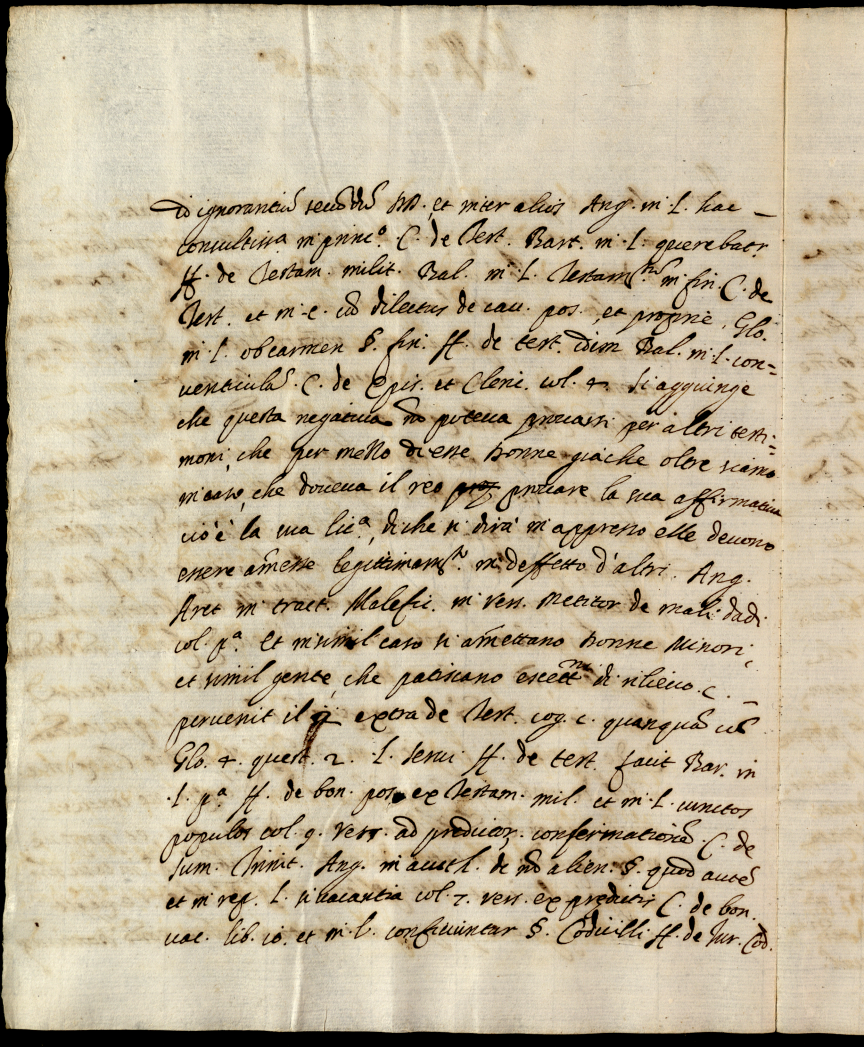 id ignorantiũ secũdũ DD. et inter alios Ang. in L. hac
consultissa in princ.º C. de Test. Bart. in L. querebatr
ff. de Testam. milit. Bal. in L. Testamtũ. in fin. C. de
Test. et in c. cũ dilectus de cau. pos. et proprie, Glo.
in L. obcarmen §. fin. ff. de test. idem Bal. in L. con=
venticulã. C. de Epis. et Cleric. col. 4. Si aggiunge
che questa negativa nõ poteva provarsi per altri testi=
moni, che per mezzo di esse Donne giache oltre siamo
in caso, che doveva il reo provare la sua affirmativa
cio è la sua lic.ª, di che si dirà in appresso elle devono
essere amesse legittimamte. in deffetto d'altri. Ang.
Aret in tract. Malefic. in vers. Mectitor de mali dadi
col. pª. Et in simil caso si amettano Donne Minori,
et simil gente, che patiscano eccettne di rilievo. c.
pervenit il 2 extra de Test. cog. c. quanquã cũ
Glo. 4. quest. 2. L. servi ff. de test. facit Bar. in
L. pª ff. de bon. pos. ex Testam. mil. et in L. cunctos
populos col. 9. vers. ad predictor. confermationẽ. C. de
Sum. Trinit. Ang. in auctl. de nõ alien. §. quod autẽ
et in rep. L. si vacantia col. 7. vers. ex predictis C. de bon.
vac. lib. 10. et in L. conficiuntur §. Codicilli ff. de Iur. Cod.